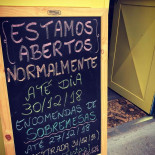 ESTAMOS
ABERTOS
NORMALMENTE
ATÉ DIA
30/12/18
ENCOMENDAS DE
SOBREMESAS
ATÉ 27/12/18